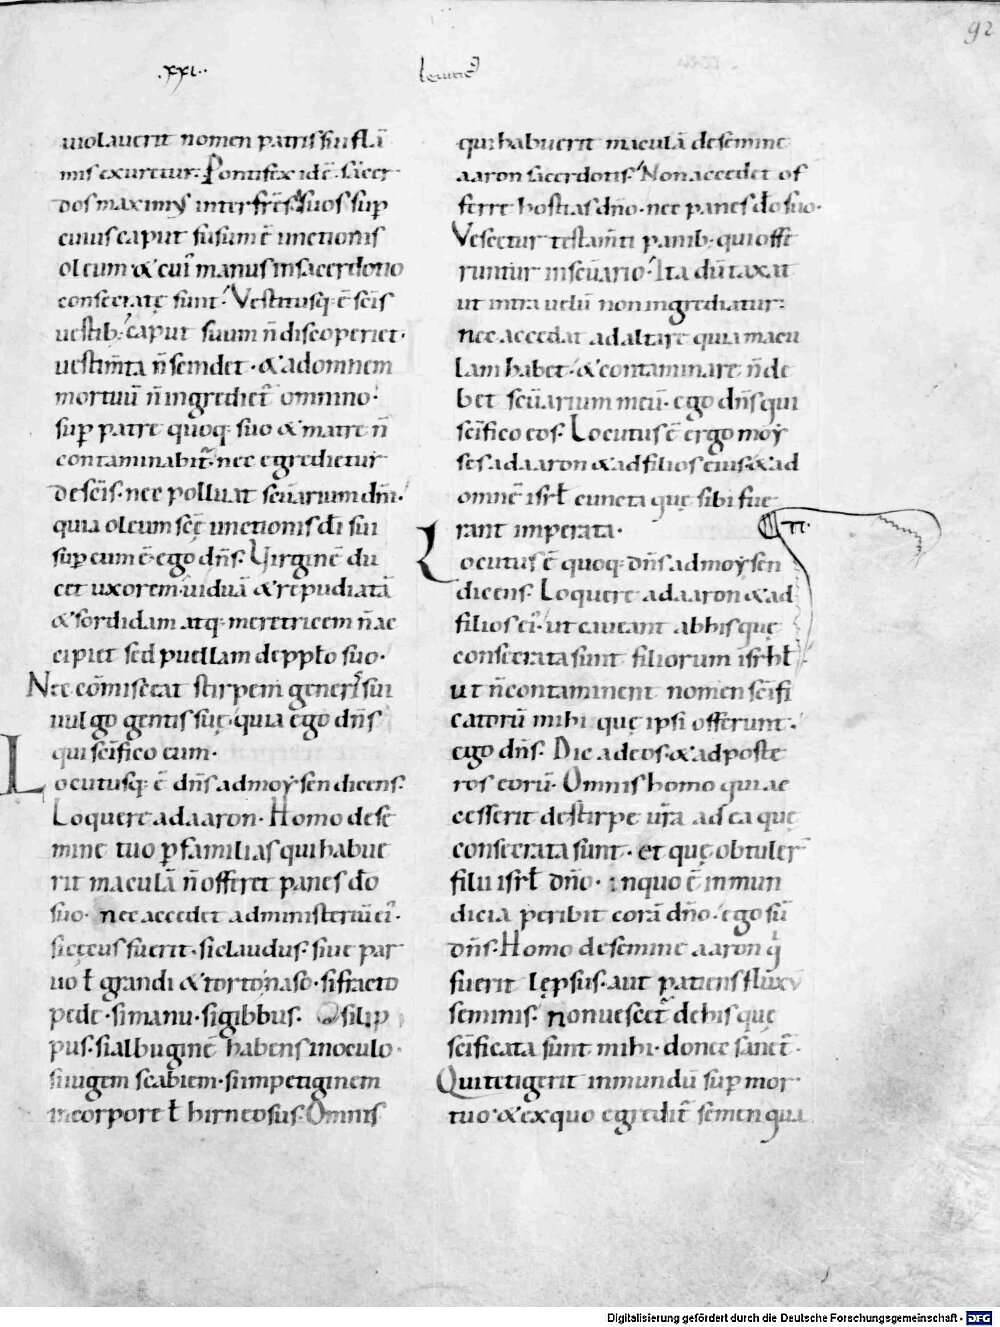 92
.xxi..
leuitic᷒
uiolauerit nomen patris sui flā
mis exuretur. Pontifex idē. sacer
dos maximꝰ inter fr̄es suos suꝑ
cuius caput fusum ē unctionis
oleum & cui᷒ manus in sacerdotio
consecratę sunt. Vestitusq; ē sc̄is
uestib; caput suum n̄ discoperiet.
uestim̄ta n̄ scindet. & ad omnem
mortuū n̄ ingrediet᷑ omnino.
suꝑ patre quoq; suo & matre n̄
contaminabit᷑. nec egredietur
de sc̄is. nec polluat sc̄uarium dn̄i.
quia oleum sc̄ę unctionis dī sui
suꝑ eum ē. ego dn̄s. Virginē du
cet uxorem. uiduā & repudiatā
& sordidam atq; meretricem n̄ ac
cipiet sed puellam de pplo suo.
Nec cōmisceat stirpem generis sui
uulgo gentis suę. quia ego dn̄s
qui sc̄ifico eum.
Locutusq; ē dn̄s ad moysen dicens.
Loquere ad aaron. Homo de se
mine tuo ꝑ familias qui habue
rit maculā n̄ offeret panes do
suo. nec accedet ad ministeriū ei᷒.
si cęcus fuerit. si claudus. siue par
uo ł grandi & torto naso. si fracto
pede. si manu. si gibbus. Si lip
pus. si albuginē habens in oculo.
si iugem scabiem. si impetiginem
in corpore ł hirneosus. Omnis
qui habuerit maculā de semine
aaron sacerdotis. Non accedet of
ferre hostias dn̄o. nec panes do suo.
Vescetur testam̄ti panib; qui offe
runtur in sc̄uario. Ita dūtaxat
ut intra uelū non ingrediatur.
nec accedat ad altare quia macu
lam habet. & contaminare n̄ de
bet sc̄uarium meū. ego dn̄s qui
sc̄ifico eos. Locutus ē ergo moy
ses. ad aaron & ad filios eius. & ad
omnē isrł cuncta quę sibi fue
rant imperata.
Locutus ē quoq; dn̄s ad moysen
dicens. Loquere ad aaron & ad
filios ei᷒. ut caueant ab his quę
consecrata sunt filiorum isrhł
ut n̄ contaminent nomen sc̄ifi
catorū mihi quę ipsi offerunt.
ego dn̄s. Dic ad eos. & ad poste
ros eorū. Omnis homo qui ac
cesserit de stirpe ur̄a ad ea quę
consecrata sunt. et quę obtuler̄
filii isrł dn̄o. in quo ē inmun
dicia peribit corā dn̄o. ego sū
dn̄s. Homo de semine aaron q
fuerit lępsus. aut patiens fluxū
seminis. non uescet᷑ de his que
sc̄ificata sunt mihi. donec sanet᷑.
Qui tetigerit inmundū suꝑ mor
tuo. & ex quo egredit᷑ semen qua
Digitalisierung gefördert durch die Deutsche Forschungsgemeinschaft - DFG